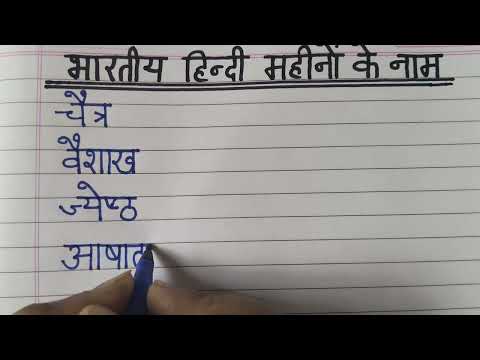 भारतीय हिन्दी महीनों के नाम
चैत्र
वैशाख
ज्येष्ठ